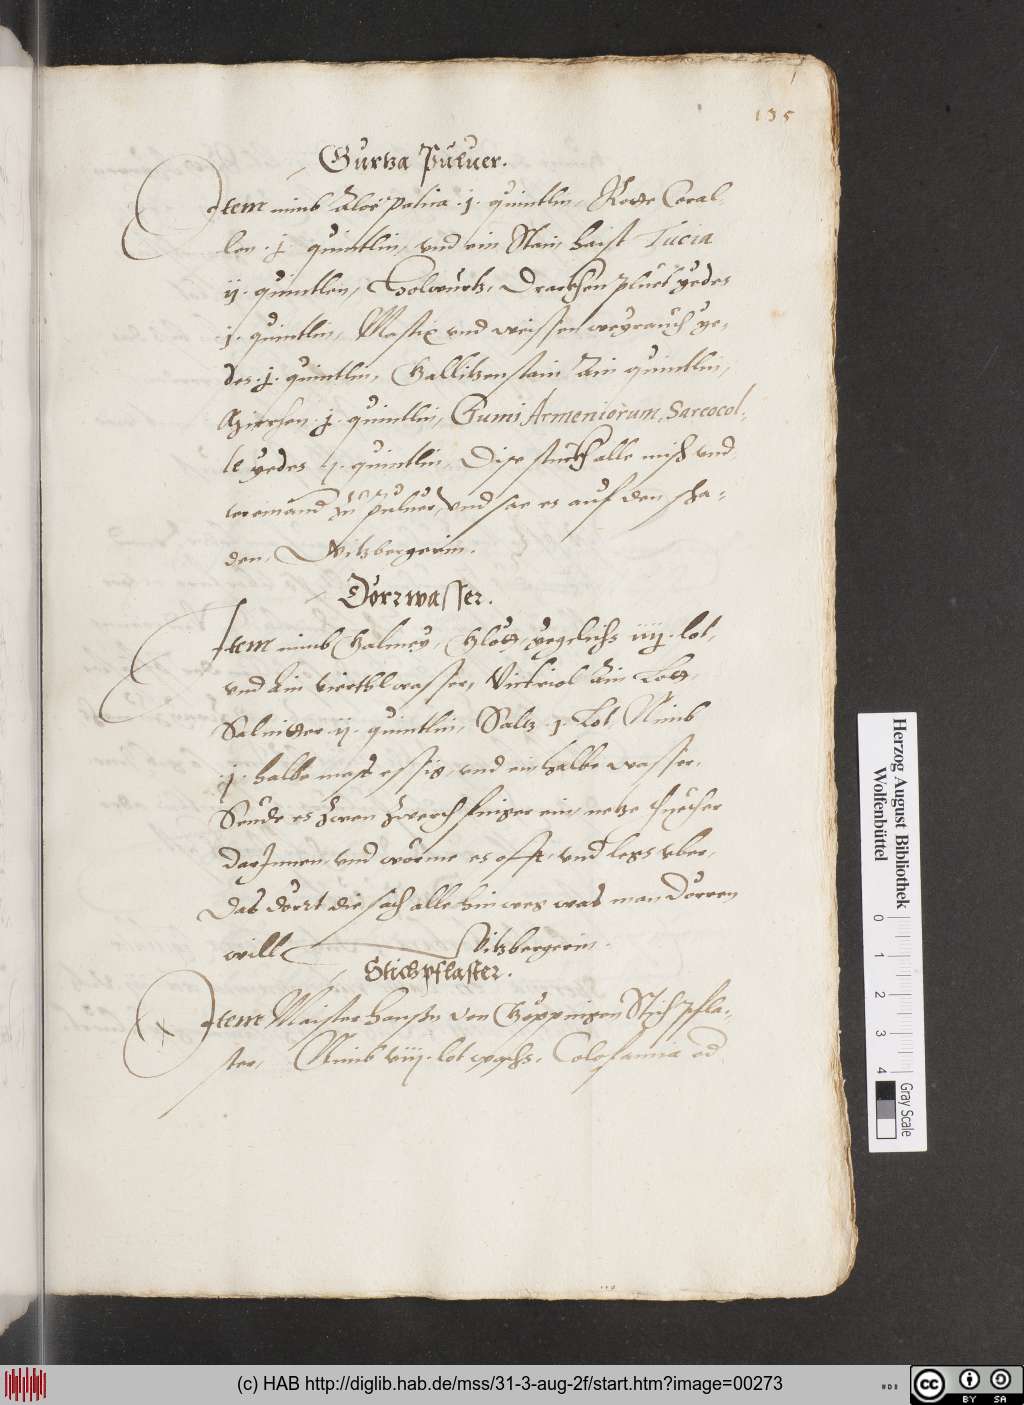 135
Gurtza Puluer.
Item nimb Aloe patica .j. quintlin, Rotte Coral-
len .j. quintlin, vnd ein Stain haist Tucia
ij. quintlen, Holwurtz, Dracken pluet yedes
.j. quintlin, Mastix vnd weissen weyrauch ye-
des .j. quintlin, Gallitzenstain Ain quintlin,
.j. quintlin, Gumi Armeniorum, Sarcocol-
le yedes quintlin, Dise stuckh alle misch vnd
zu puluer, vnd sae es auf den scha-
den, Vitzbergerin.
Dörrwasser.
Item nimb Galmey, Glött, yegelichs iiij. lot,
vnd Ain vierthl wasser, Victriol Ain Lott,
Salniter .ij. quintlin, Saltz .j. Lot, Nimb
.j. halbe mass essig, vnd ein halbe wasser,
Seude es zwen zwerch finger ein, netze thuecher
darInnen, vnd wörme es offt, vnd legs vber,
Das dörrt die sach alle hinweg was man dörren
will Vitzbergerin.
Stichpflaster.
Item Maister Hannsen von Göppingen Stichpfla-
ster, Nimb viij. lot wachs, Colofonia
Herzog August Bibliothek
Wolfenbüttel
0 1 2 3 4
Gray Scale
(c) HAB http://diglib.hab.de/mss/31-3-aug-2f/start.htm?image=00273
cc BY SA